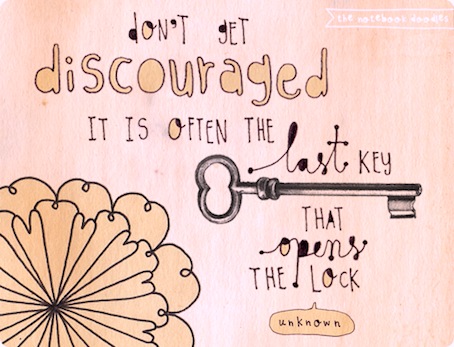 the notebook doodles
don't get
discouraged
it is often the
last key
that
opens
the lock
unknown